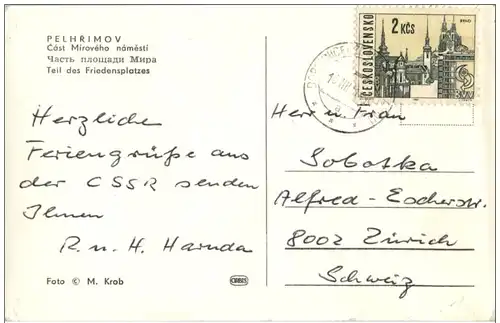 PELHŘIMOV
Část Mírového náměstí
Часть площади Мира
Teil des Friedensplatzes
2 KČS
BRNO
ČESKOSLOVENSKO
Herzliche
Feriengrüße aus
der CSSR senden
Ihnen
R. u. H. Harnda
Herr u. Frau
Sobotka
Alfred-Escherstr.
8002 Zürich
Schweiz
Foto © M. Krob
ORBIS